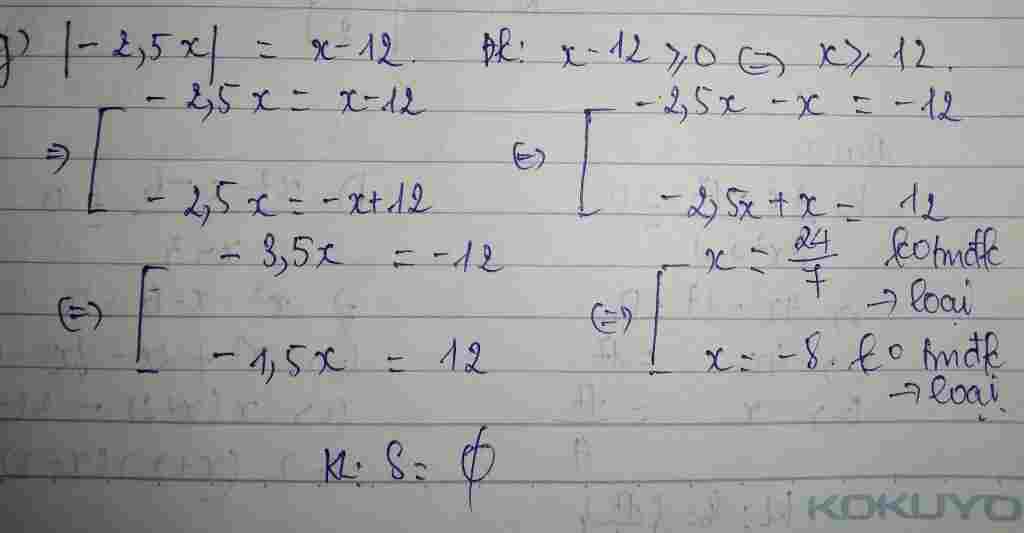 g) |-2,5x| = x-12. Đk: x-12 ≥ 0 (=) x ≥ 12.
=) [ -2,5x = x-12 (=) [ -2,5x - x = -12
-2,5x = -x+12 -2,5x + x = 12
(=) [ -3,5x = -12 (=) [ x = 24/7 ko tmđk
→ loại
-1,5x = 12 x = -8. ko tmđk
→ loại
KL: S = ∅
KOKUYO